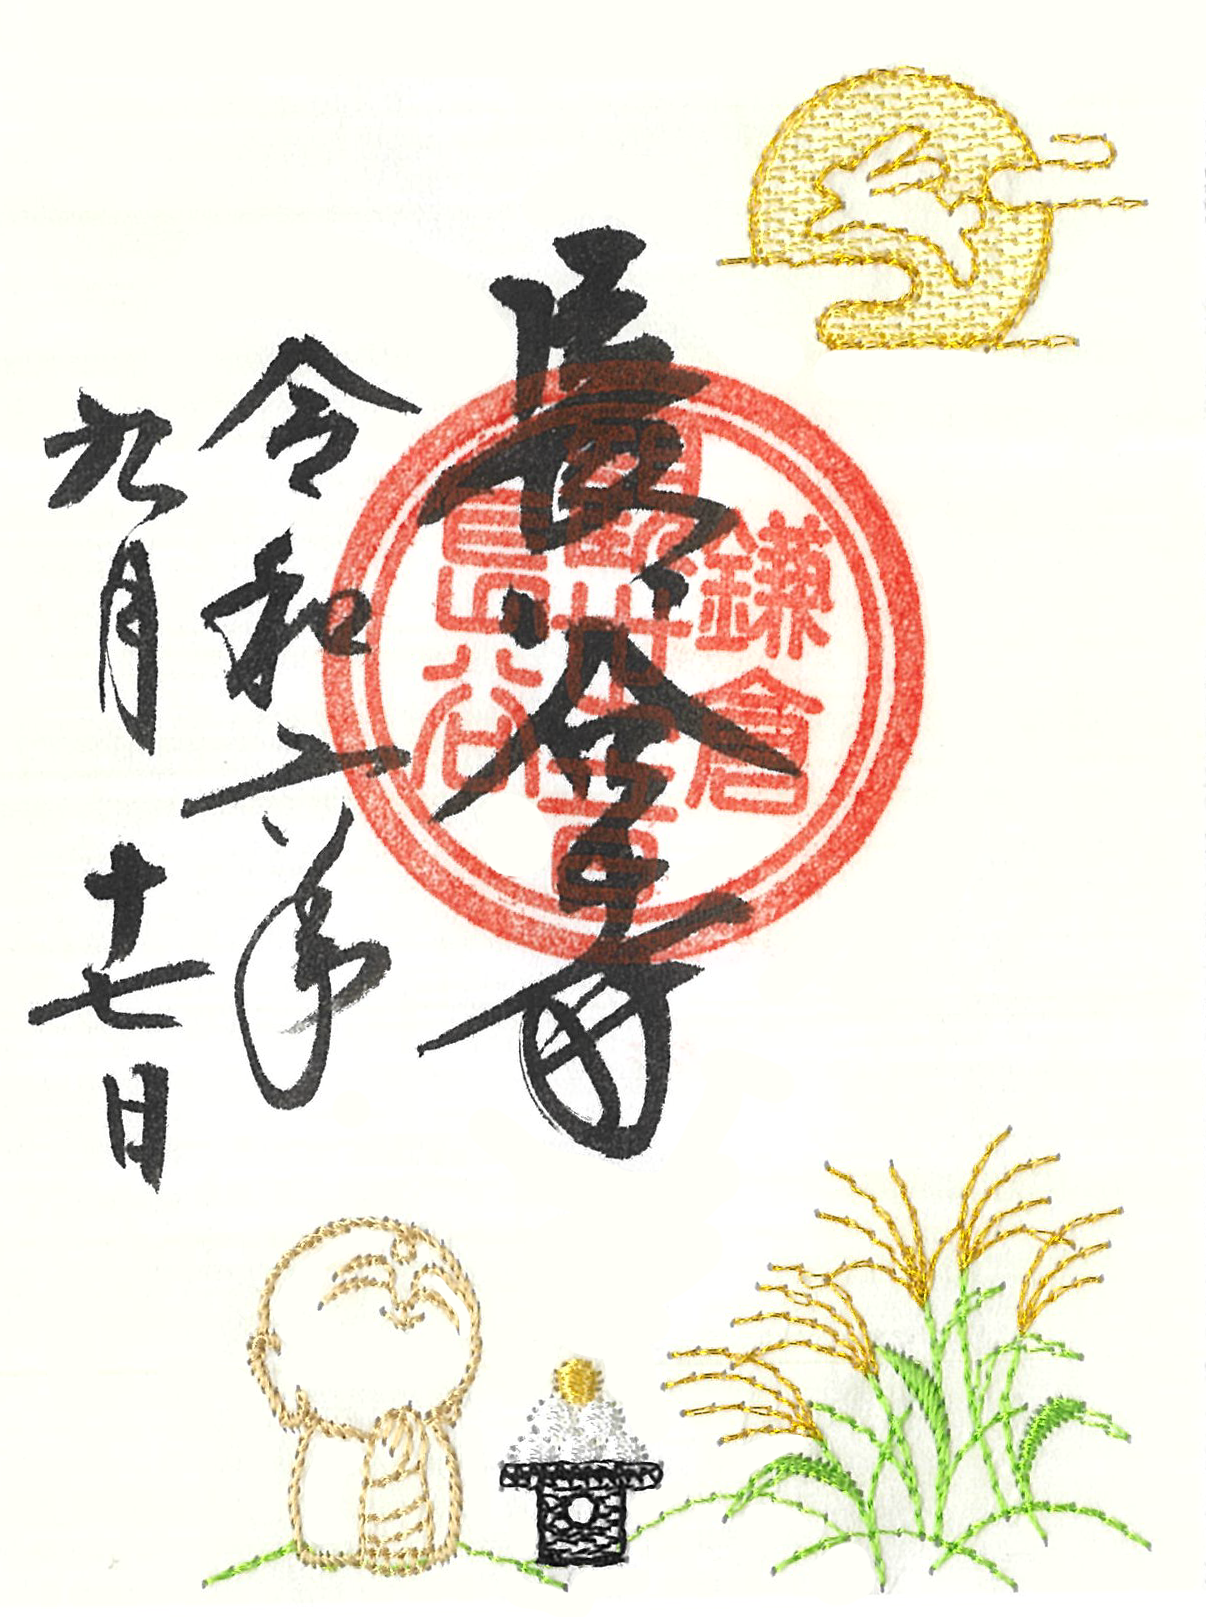 長谷寺
令和六年
九月十七日
鎌倉
観世音
長谷